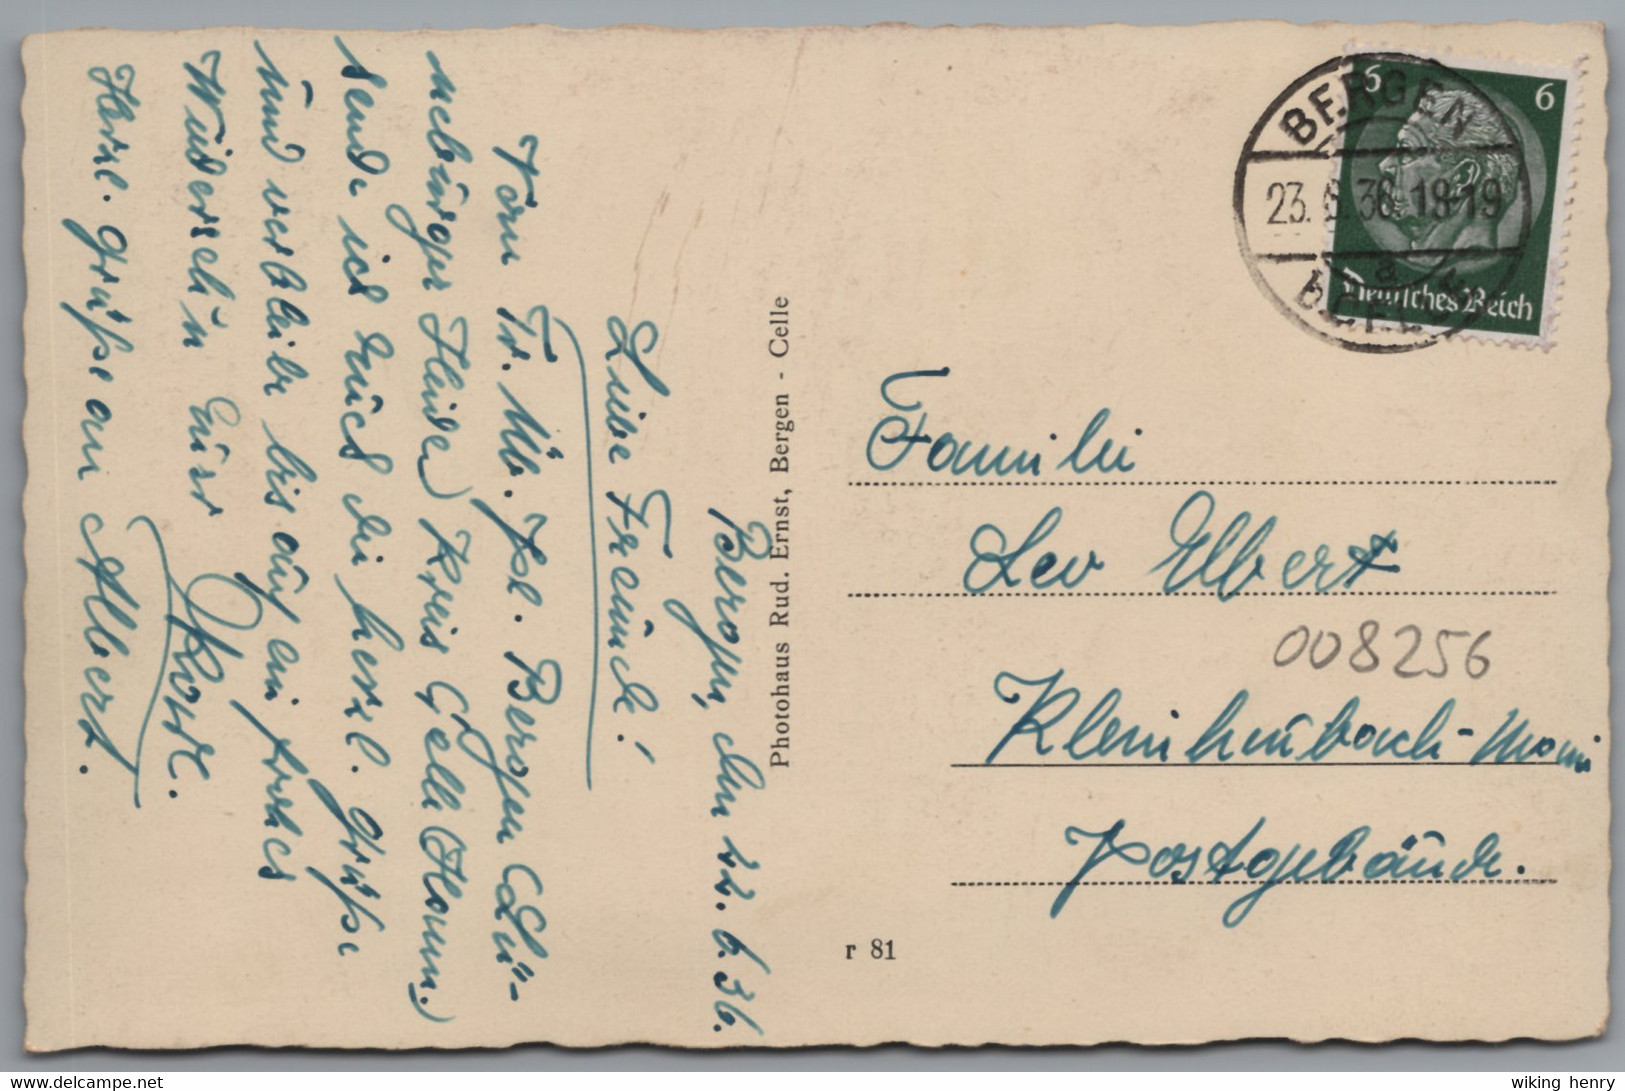 Bergen, den 22.6.36.
Liebe Freunde!
Vom Tr. Üb. Pl. Bergen (Lü-
neburger Heide) Kreis Celle (Hann.)
sende ich Euch die herzl. Grüße
und verbleibe bis auf ein frohes
Wiedersehn Euer
Herzl. Grüße an Albert.
Photohaus Rud. Ernst, Bergen - Celle
BERGEN
23.6.36. 18-19
a
b. CELLE
6 6
Deutsches Reich
Familie
Leo Elbert
008256
Kleinheubach-Main
Postgebäude.
r 81
www.delcampe.net
wiking henry